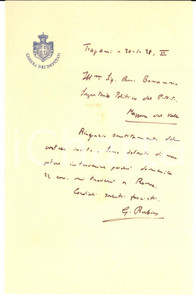 CAMERA DEI DEPUTATI
Trapani - 20.10.28. VI
Ill.mo Sig. Avv.
Segretario Politico del P.N.F.
Mazara del Vallo
Ringrazio sentitamente del
cortese invito. Sono dolente di non
poter intervenire perché domenica
a Roma.
Cordiali saluti fascisti.
G. Rubino